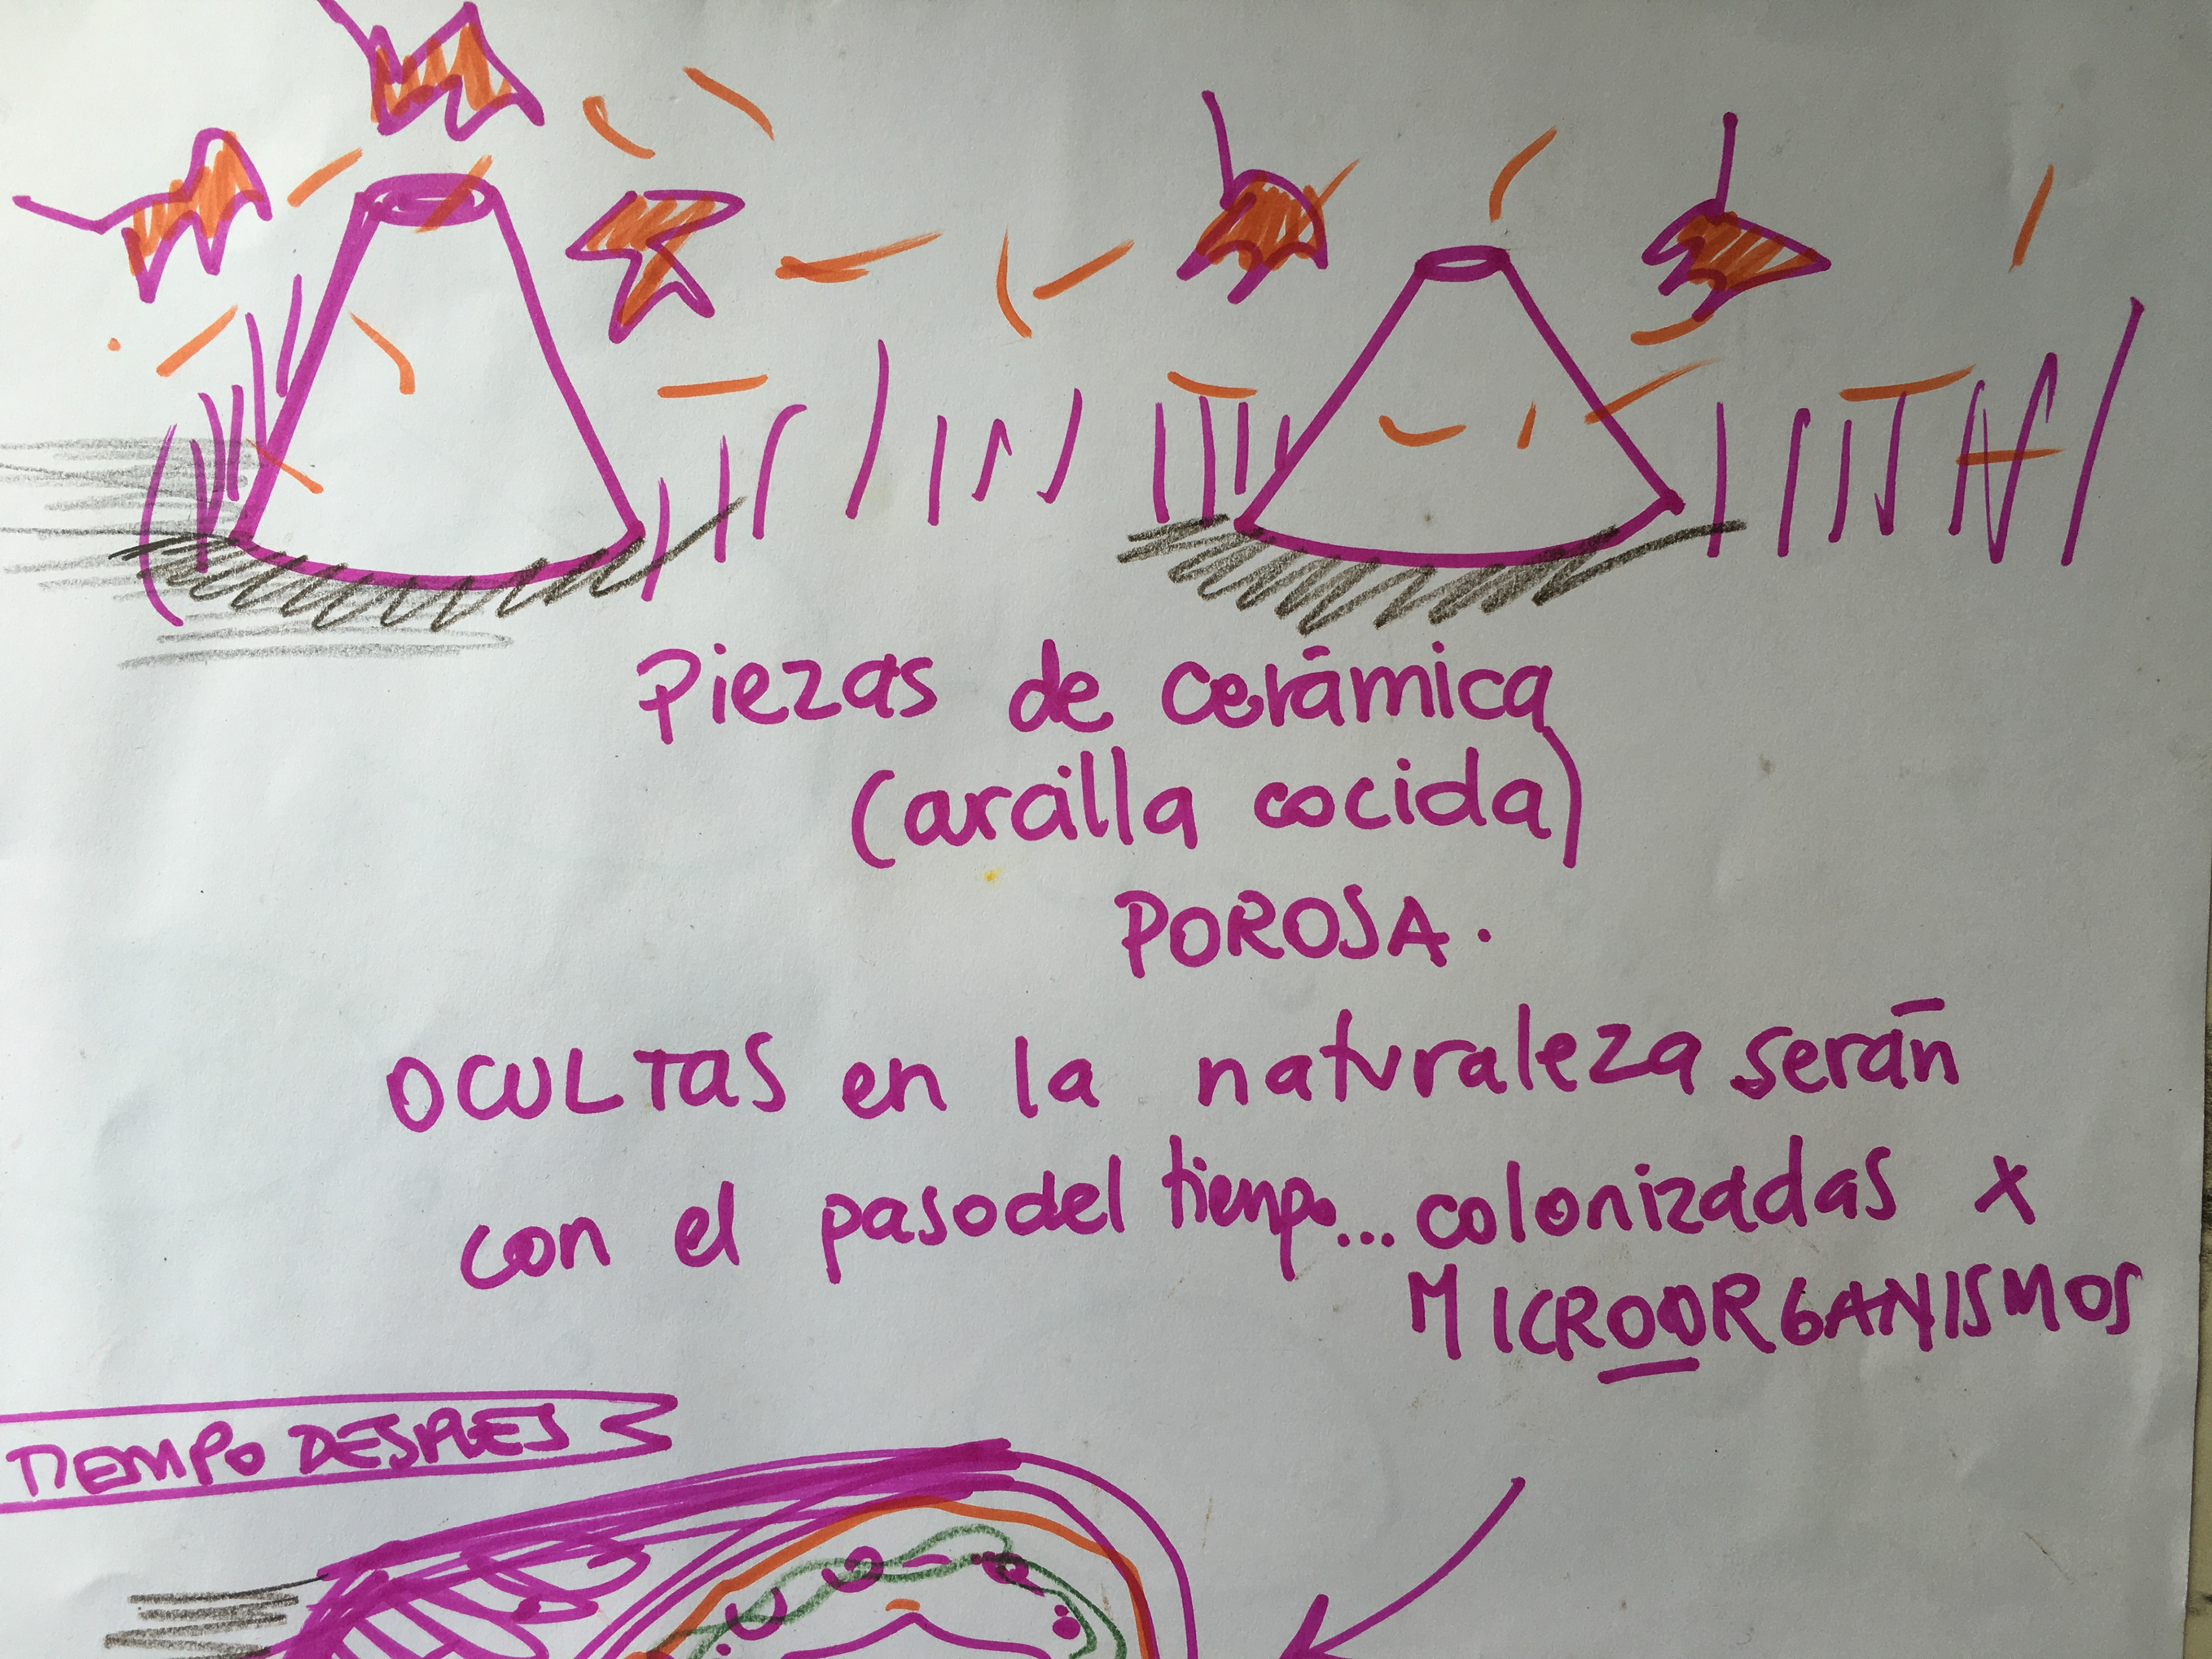 Piezas de cerámica
(arcilla cocida)
POROSA.
OCULTAS en la naturaleza serán
con el paso del tiempo... colonizadas x
MICROORGANISMOS
TIEMPO DESPUES